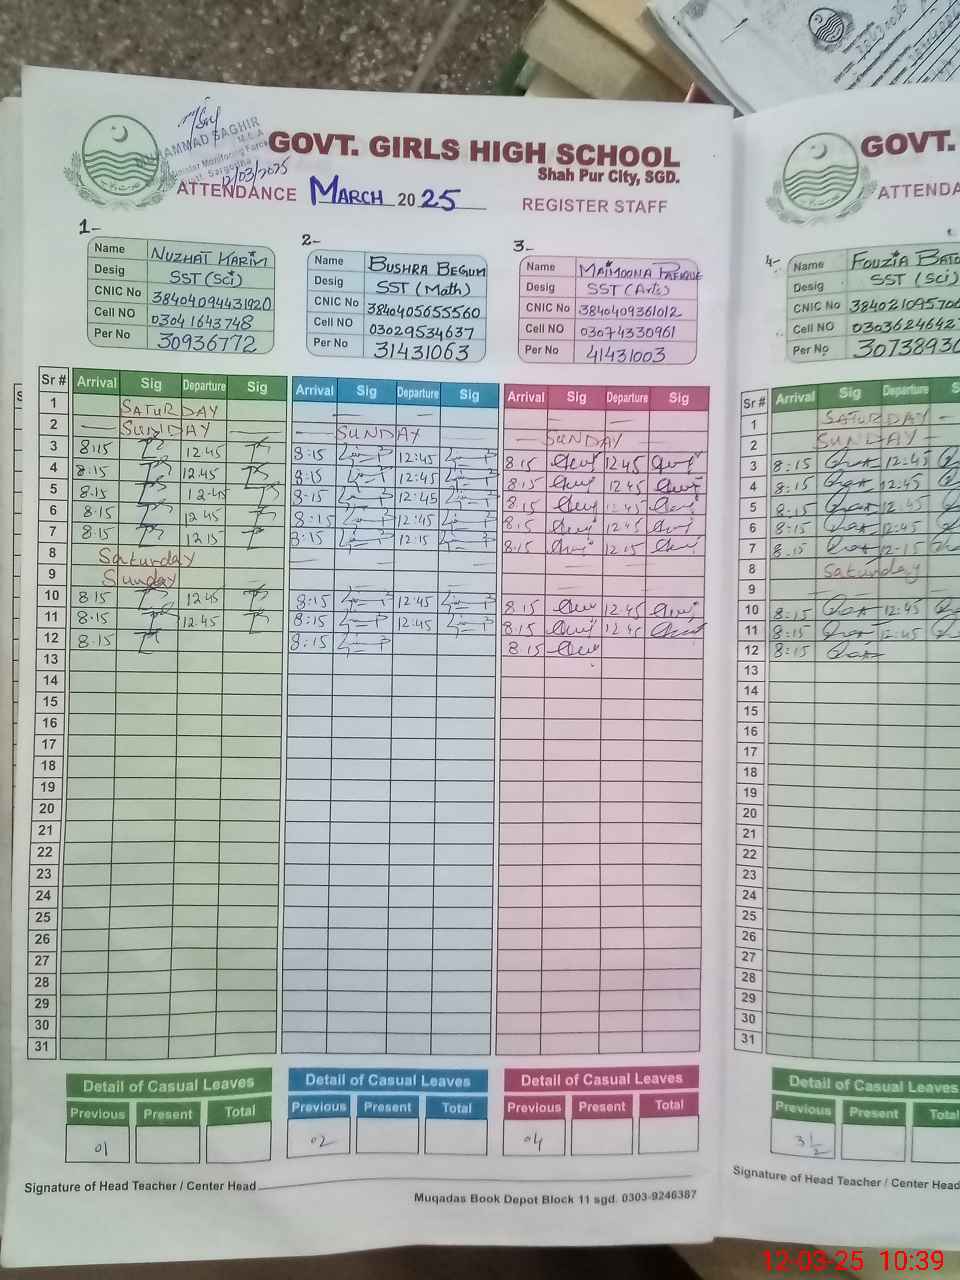 MUHAMMAD SAGHIR
M.E.A
Chief Minister Monitoring Force
Distt. Sargodha
12/03/2025
GOVT. GIRLS HIGH SCHOOL
Shah Pur City, SGD.
ATTENDANCE MARCH 2025 REGISTER STAFF
1-
Name NUZHAT KARIM
Desig SST (Sci)
CNIC No 38404094431920
Cell NO 03041643748
Per No 30936772
2-
Name BUSHRA BEGUM
Desig SST (Math)
CNIC No 3840405655560
Cell NO 03029534637
Per No 31431063
3-
Name MAIMOONA RAFIQUE
Desig SST (Arts)
CNIC No 3840409361012
Cell NO 03074330961
Per No 41431003
Sr # Arrival Sig Departure Sig Arrival Sig Departure Sig Arrival Sig Departure Sig
1 SATURDAY
2 SUNDAY SUNDAY SUNDAY
3 8:15 12.45 8:15 12:45 8.15 12.45
4 8:15 12.45 8:15 12:45 8.15 12.45
5 8.15 12.45 8:15 12:45 8.15 12.45
6 8.15 12.45 8:15 12:45 8.15 12.45
7 8.15 12.15 8:15 12:15 8.15 12.15
8 Saturday
9 Sunday
10 8.15 12.45 8:15 12:45 8.15 12.45
11 8.15 12.45 8:15 12:45 8.15 12.45
12 8.15 8:15 8.15
13
14
15
16
17
18
19
20
21
22
23
24
25
26
27
28
29
30
31
Detail of Casual Leaves Detail of Casual Leaves Detail of Casual Leaves
Previous Present Total Previous Present Total Previous Present Total
01 02 04
Signature of Head Teacher / Center Head
Muqadas Book Depot Block 11 sgd. 0303-9246387
GOVT.
ATTENDA
4-
Name FOUZIA BATO
Desig SST (Sci)
CNIC No 384021095706
Cell NO 0303624642
Per No 3073893
Sr # Arrival Sig Departure S
1 SATURDAY
2 SUNDAY
3 8:15 12:45
4 8:15 12:45
5 8:15 12:45
6 8:15 12:45
7 8:15 12:15
8 Saturday
9
10 8:15 12:45
11 8:15 12:45
12 8:15
13
14
15
16
17
18
19
20
21
22
23
24
25
26
27
28
29
30
31
Detail of Casual Leaves
Previous Present Total
3 1/2
Signature of Head Teacher / Center Head
12-03-25 10:39